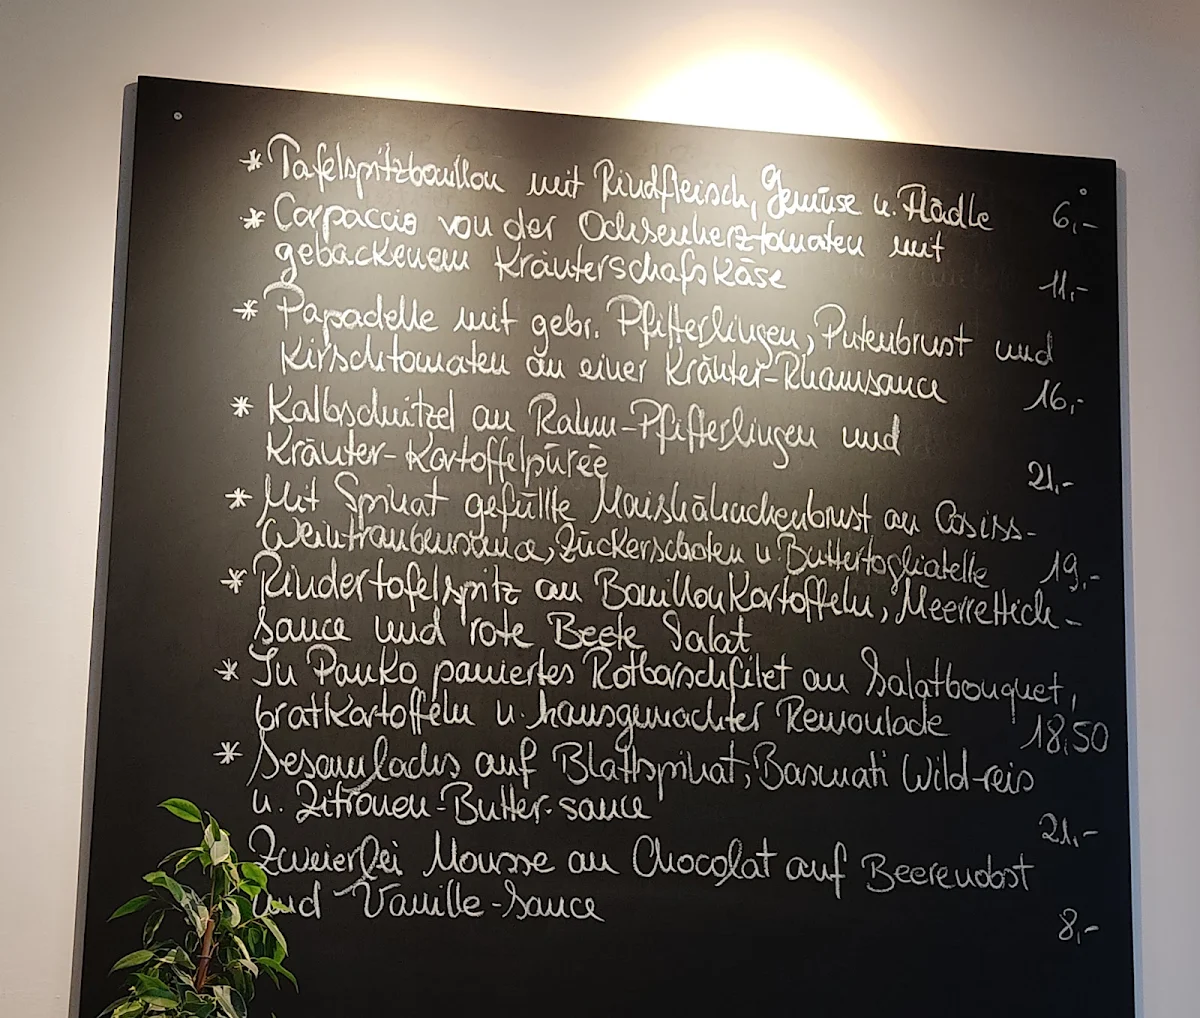 * Tafelspitzbouillon mit Rindfleisch, Gemüse u. Flädle 6,-
* Carpaccio von der Ochsenherztomaten mit
gebackenem Kräuterschafskäse 11,-
* Papadelle mit gebr. Pfifferlingen, Putenbrust und
Kirschtomaten an einer Kräuter-Rhamsauce 16,-
* Kalbschnitzel an Rahm-Pfifferlingen und
Kräuter-Kartoffelpüree 21,-
* Mit Spinat gefüllte Maishähnchenbrust an Casiss-
Weintraubensauce, Zuckerschoten u. Buttertogliatelle 19,-
* Rindertafelspitz an Bouillonkartoffeln, Meerrettich-
sauce und rote Beete Salat
* In Panko paniertes Rotbarschfilet an Salatbouquet,
bratkartoffeln u. hausgemachter Remoulade 18,50
* Sesamlachs auf Blattspinat, Basmati Wild-reis
u. Zitronen-Butter-sauce 21,-
Zweierlei Mousse au Chocolat auf Beerenobst
und Vanille-Sauce 8,-